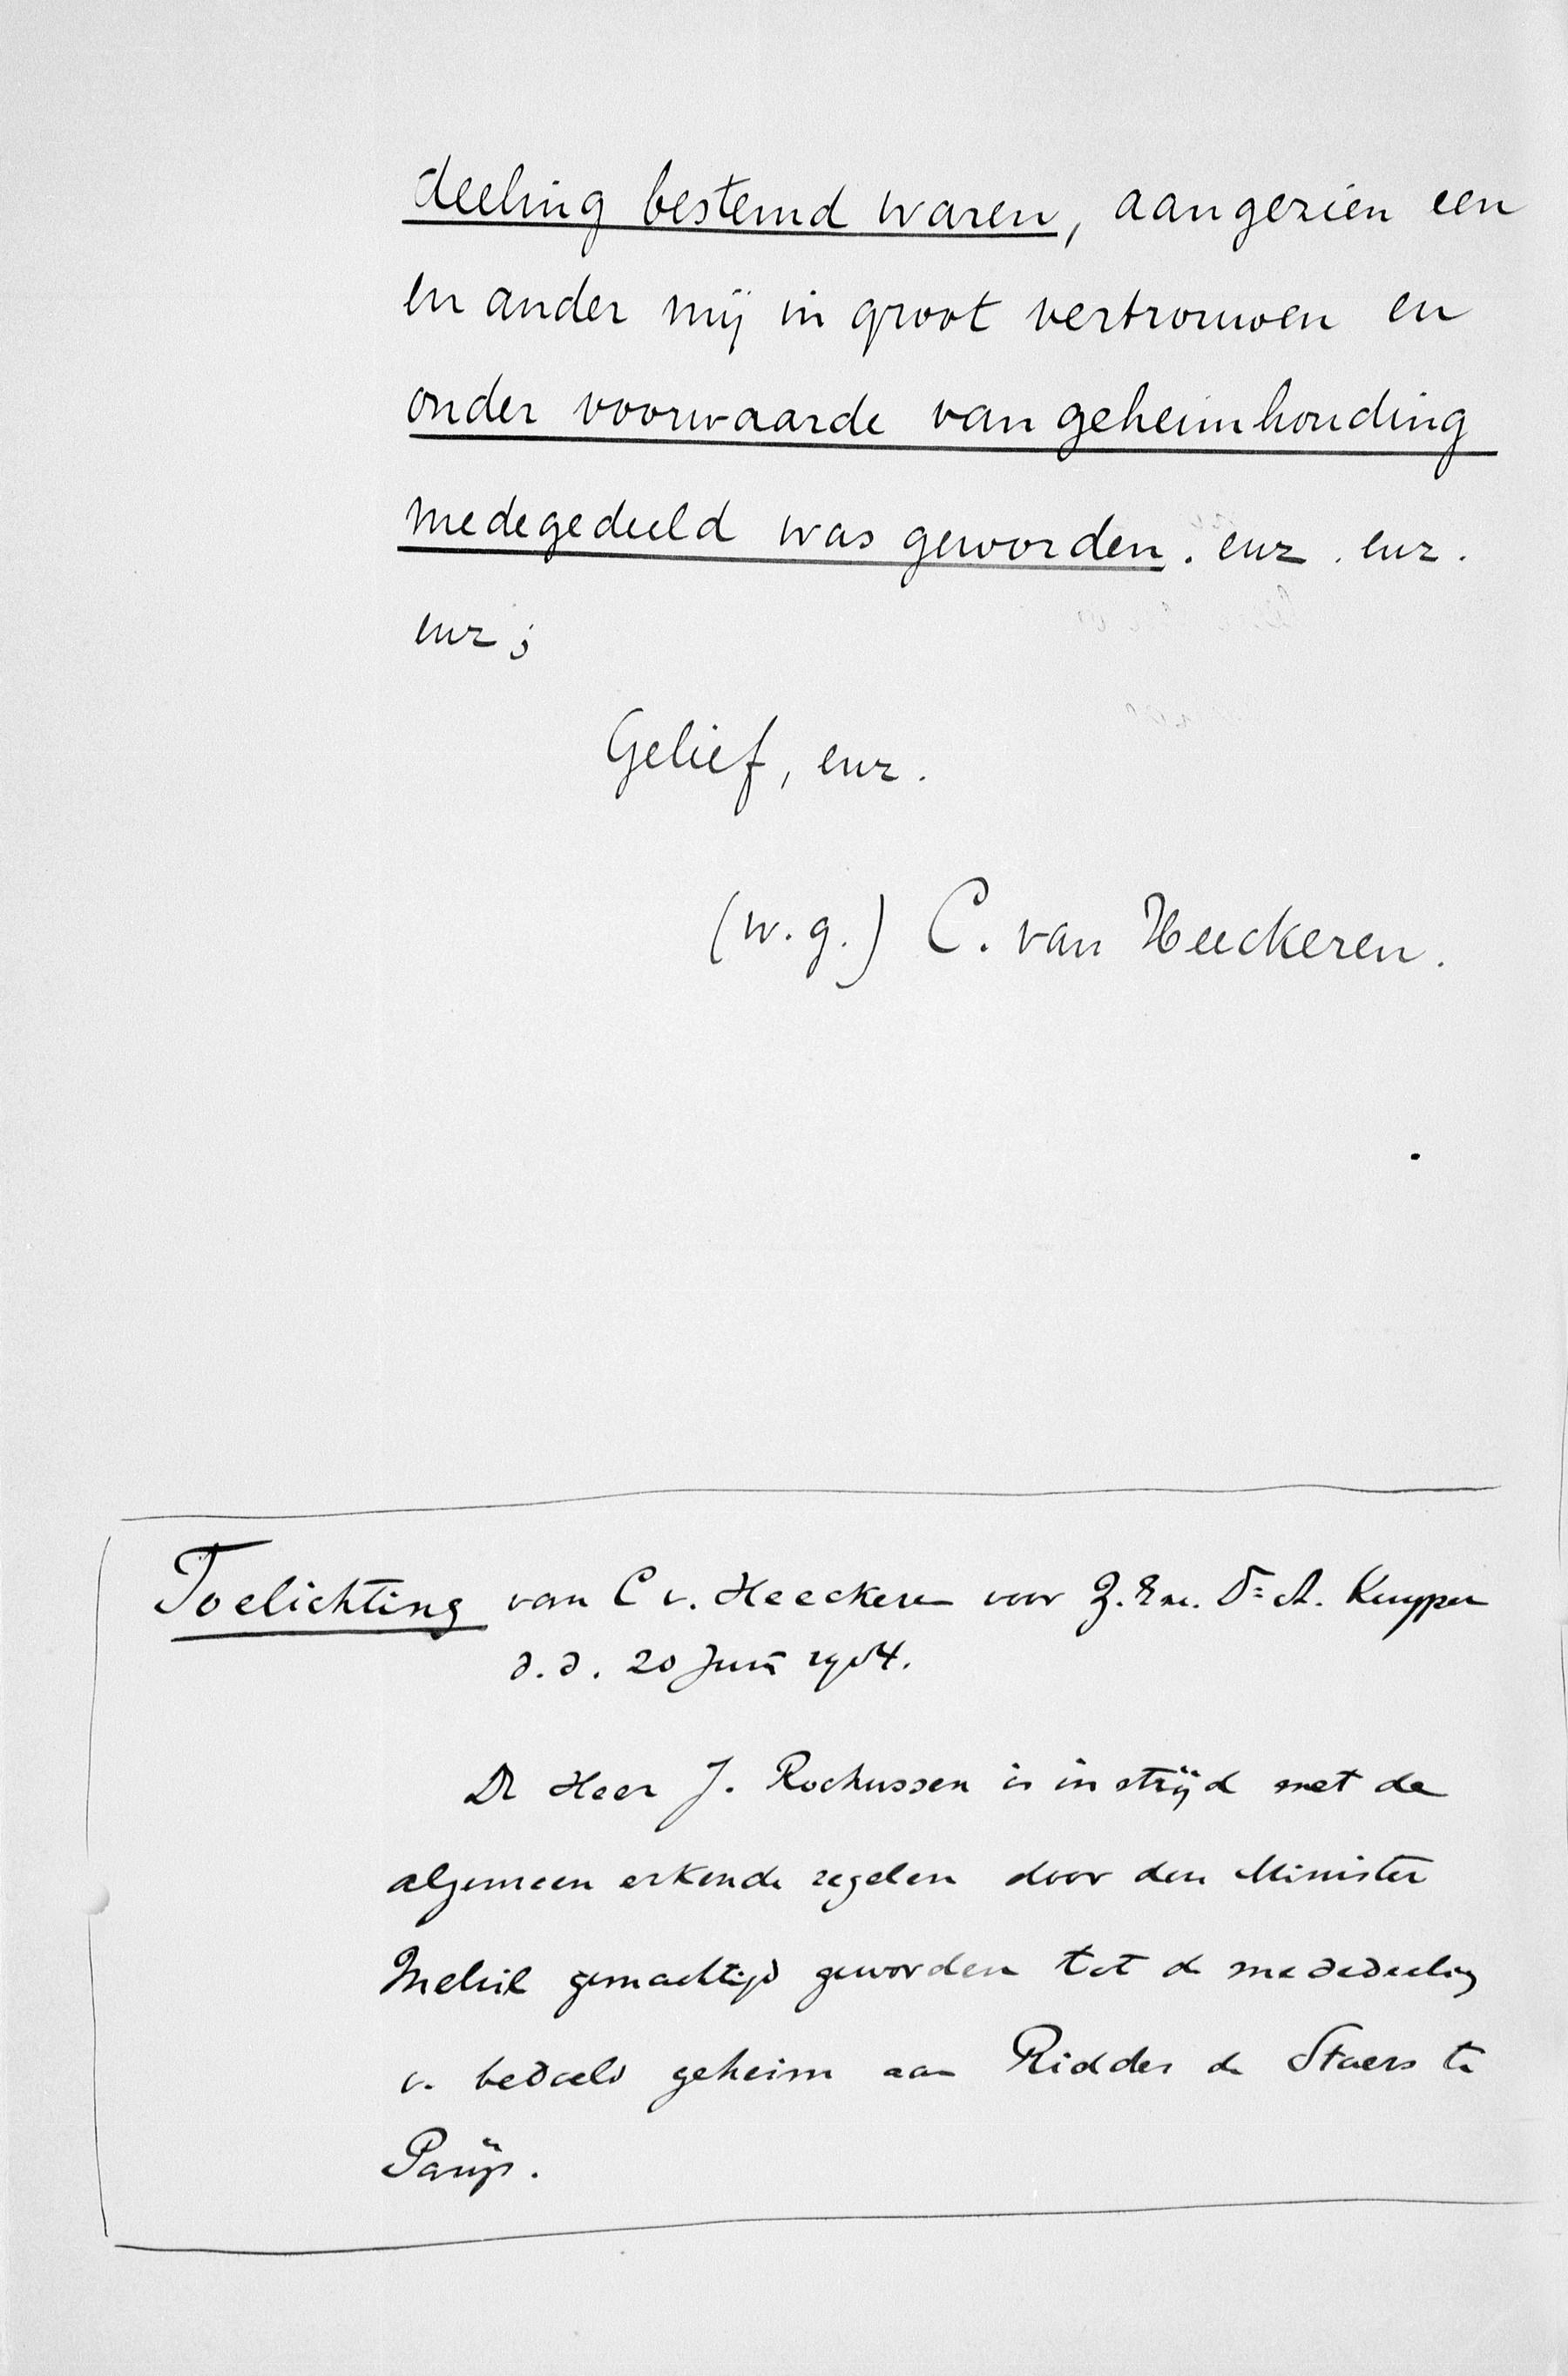 deeling bestemd waren, aangezien een
en ander mij in groot vertrouwen en
onder voorwaarde van geheimhouding
medegedeeld was geworden. enz. enz.
enz;
Gelief, enz.
(w.g.) C. van Heeckeren.
Toelichting van C v. Heeckeren voor Z. Exc. Dr A. Kuyper
d.d. 20 Juni 1904.
De Heer J. Rochussen is in strijd met de
algemeen erkende regelen door den Minister
Melvil gemachtigd geworden tot de mededeeling
v. bedoeld geheim aan Ridder de Stuers te
Parijs.